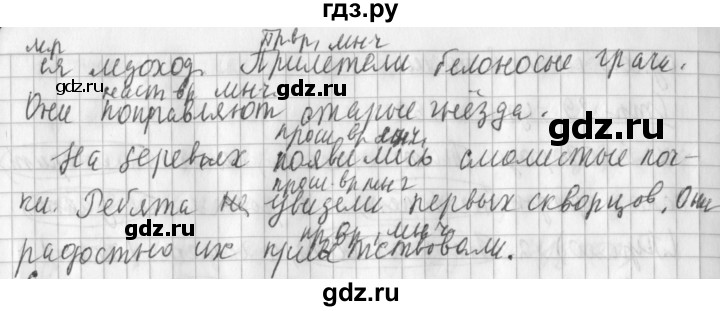 гдз.ру
м.р
пр вр, мн ч
ся ледоход. Прилетели белоносые грачи.
gdz.ru
gdz.ru
gdz.ru
наст вр мн ч
Они поправляют старые гнёзда.
прош. вр мн ч
На деревьях появились смолистые поч-
прош. вр мн ч
ки. Ребята увидели первых скворцов. Они
пр вр, мн ч
радостно их приветствовали.
gdz.ru
gdz.ru
gdz.ru